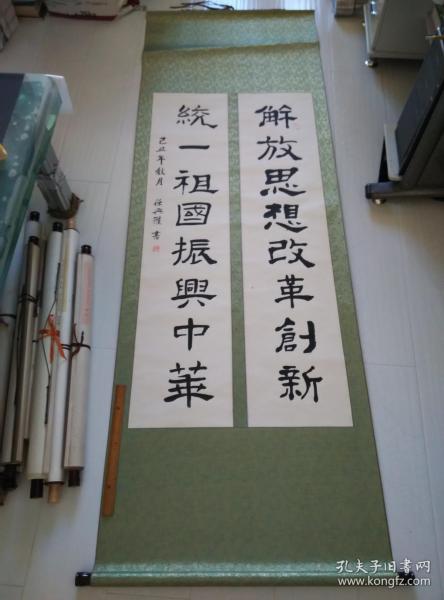 解放思想改革創新
統一祖國振興中華
己丑年秋月
書
孔夫子旧书网
www.kongfz.com